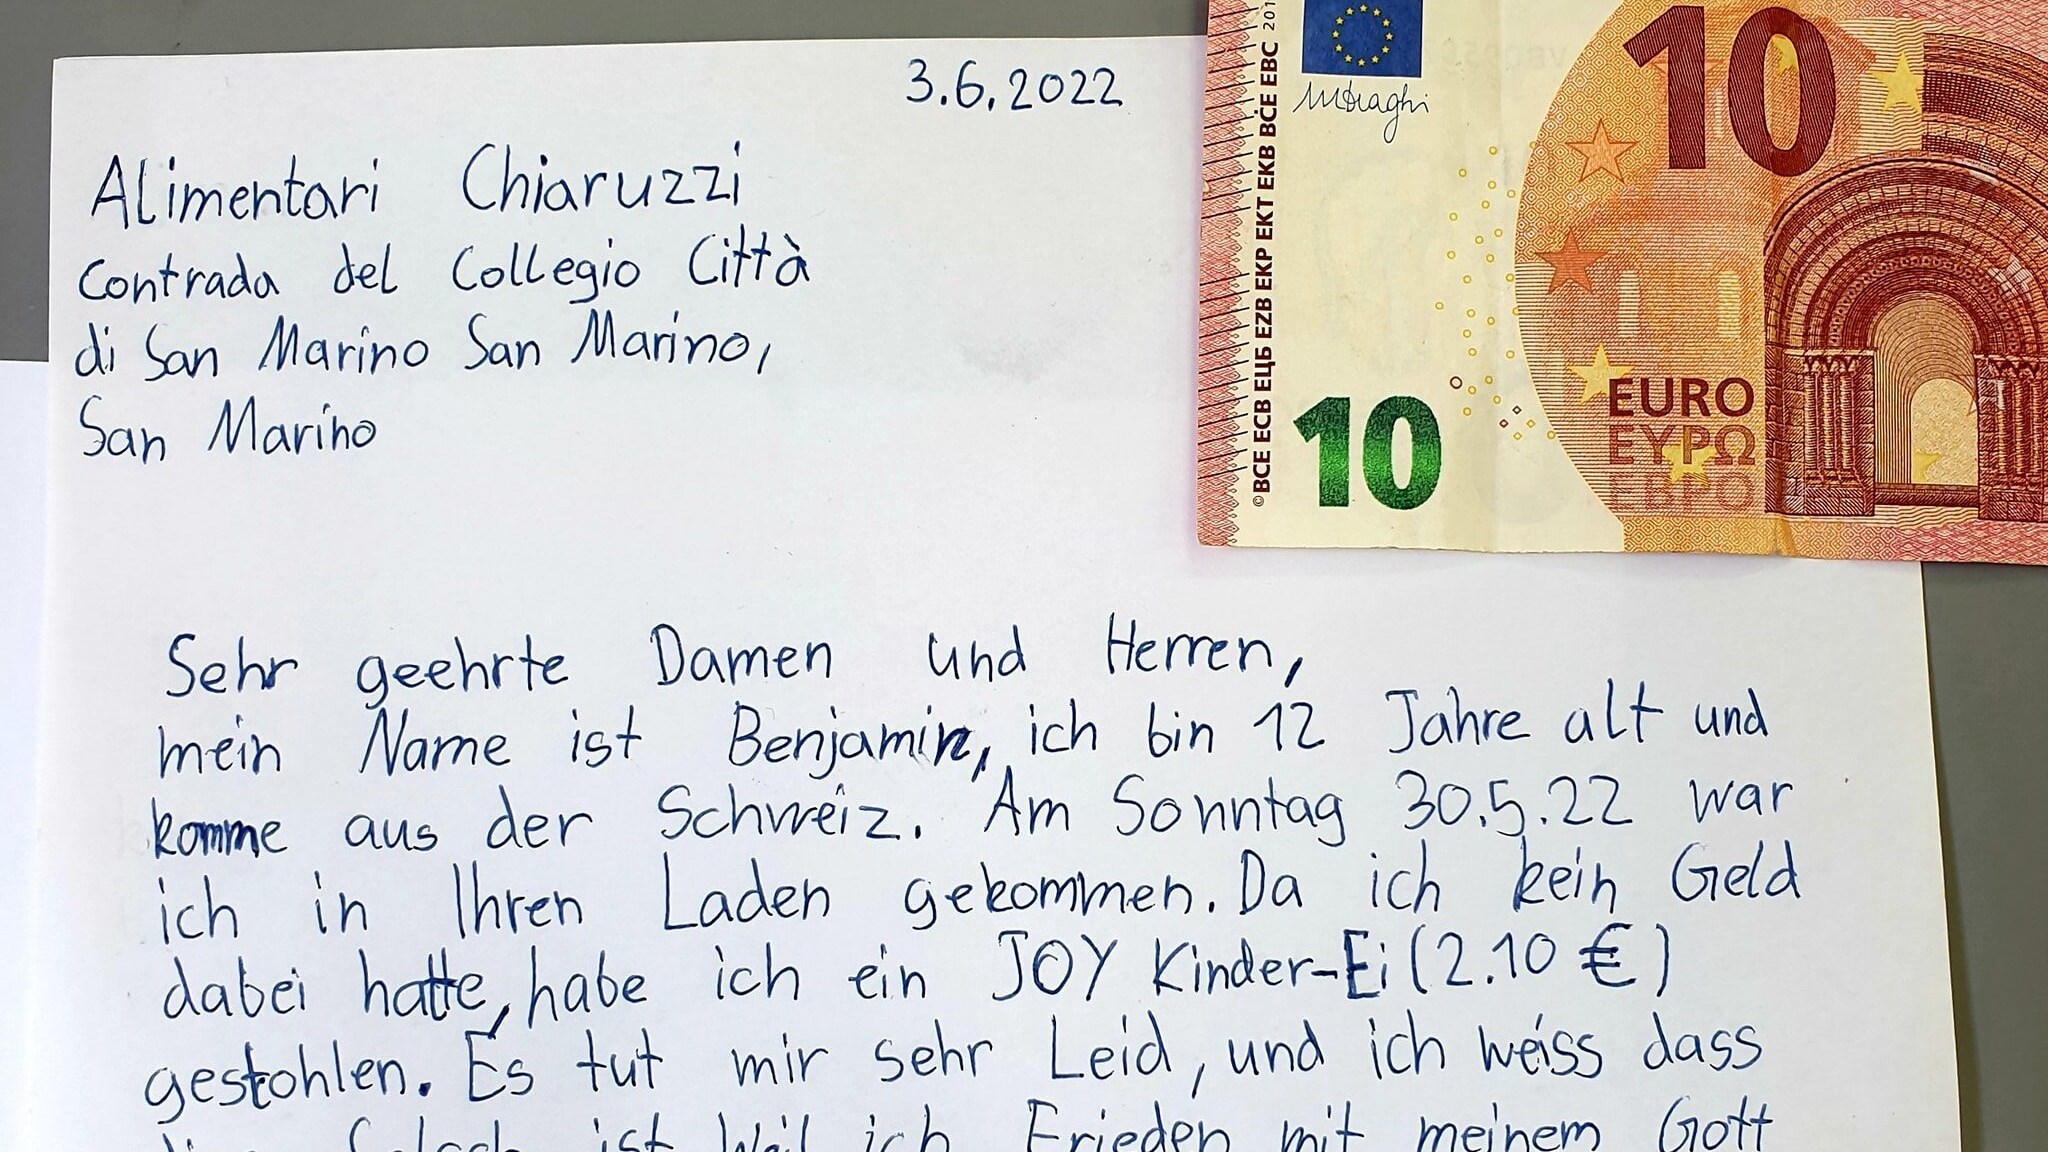 3.6.2022
Alimentari Chiaruzzi
Contrada del Collegio Città
di San Marino San Marino,
San Marino
Sehr geehrte Damen und Herren,
mein Name ist Benjamin, ich bin 12 Jahre alt und
komme aus der Schweiz. Am Sonntag 30.5.22 war
ich in Ihren Laden gekommen. Da ich kein Geld
dabei hatte, habe ich ein JOY Kinder-Ei (2.10 €)
gestohlen. Es tut mir sehr Leid, und ich weiss dass
ist Weil ich Frieden mit meinem Gott
©BCE ECB ЕЦБ EZB EKP EKT EKB BĊE EBC 201
MDraghi
10
10
EURO
ΕΥΡΩ
ЕВРО